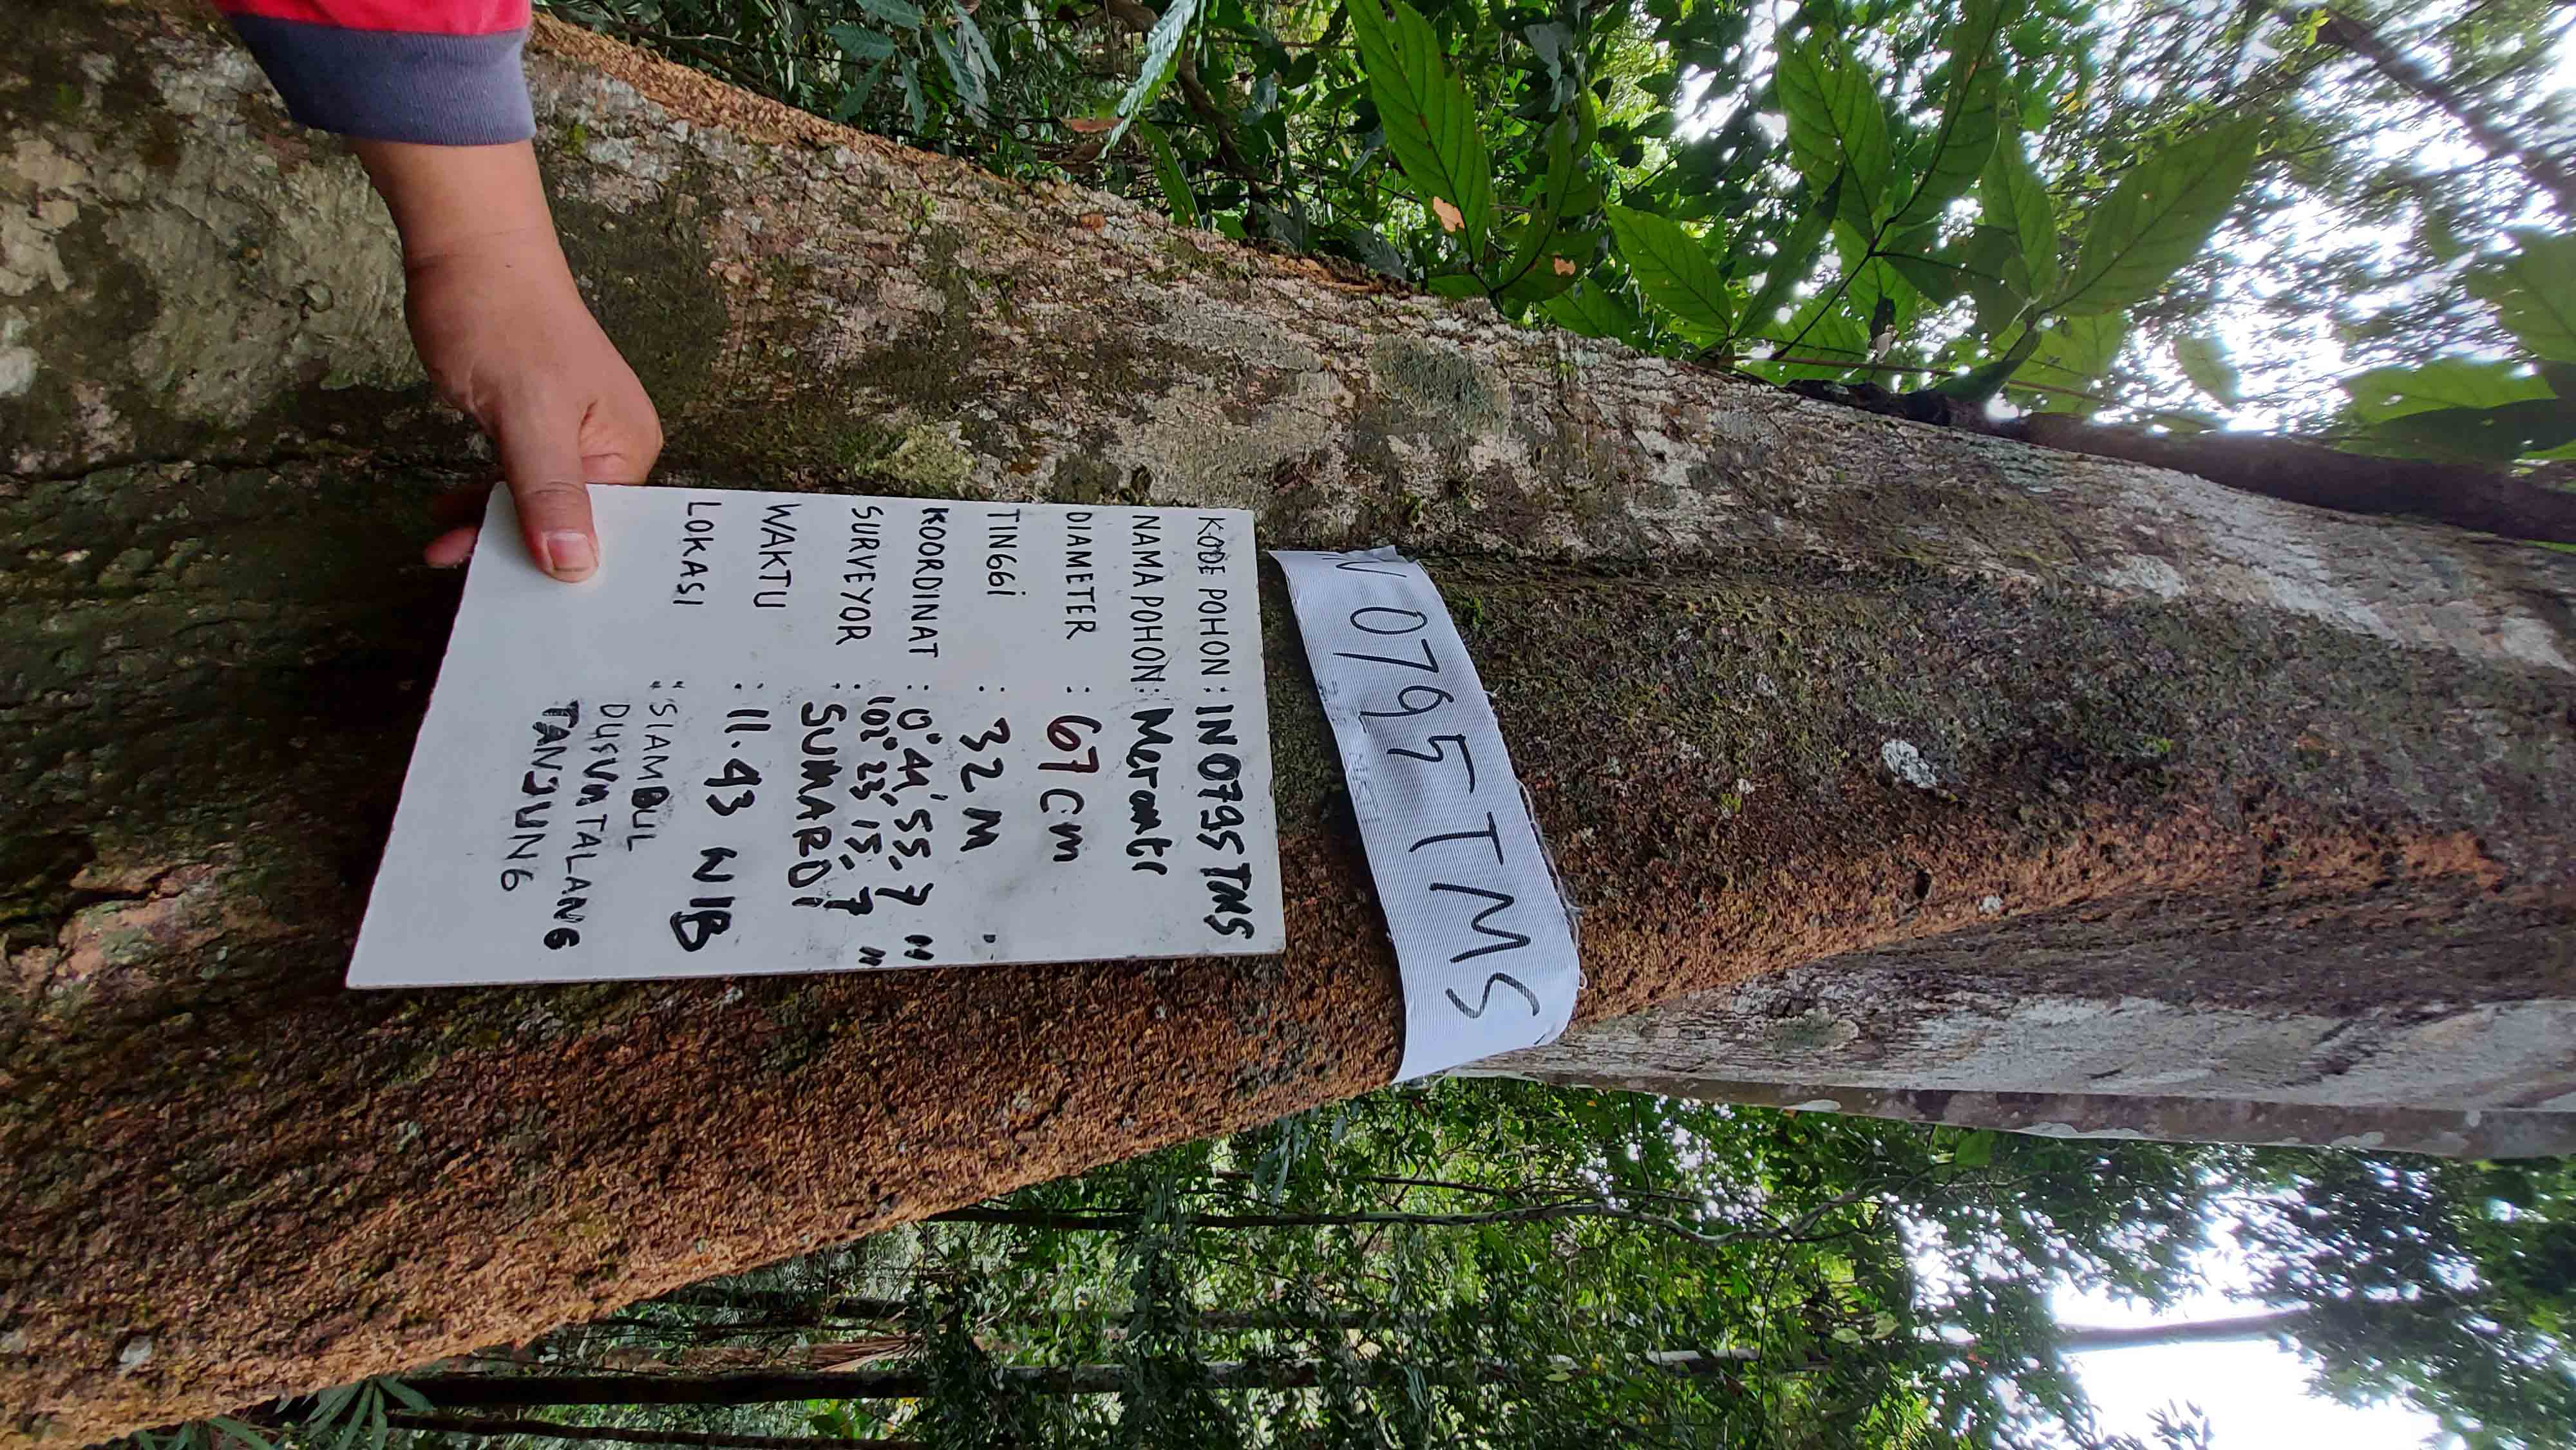 N 0795 TMS
KODE POHON : IN0795 TMS
NAMA POHON : Meranti
DIAMETER : 67 cm
TINGGi : 32 M
KOORDINAT : 0° 44' 55,7 "
102° 23' 15,7 "
SURVEYOR : SUMARDi
WAKTU : 11.43 WIB
LOKASI : SIAMBUL
DUSUN TALANG
TANJUNG